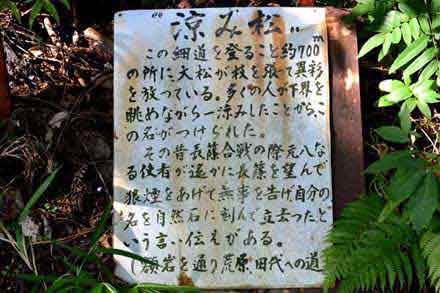 "涼み松"
この細道を登ること約700m
の所に大松が枝を張て異彩
を放っている。多くの人が下界を
眺めながら一涼みしたことから、こ
の名がつけられた。
その昔長篠合戦の際元八な
る使者が遥かに長篠を望んで
狼煙をあげて無事を告げ自分の
名を自然石に刻んで立去ったと
いう言い伝えがある。
岩を通り荒原、田代への道